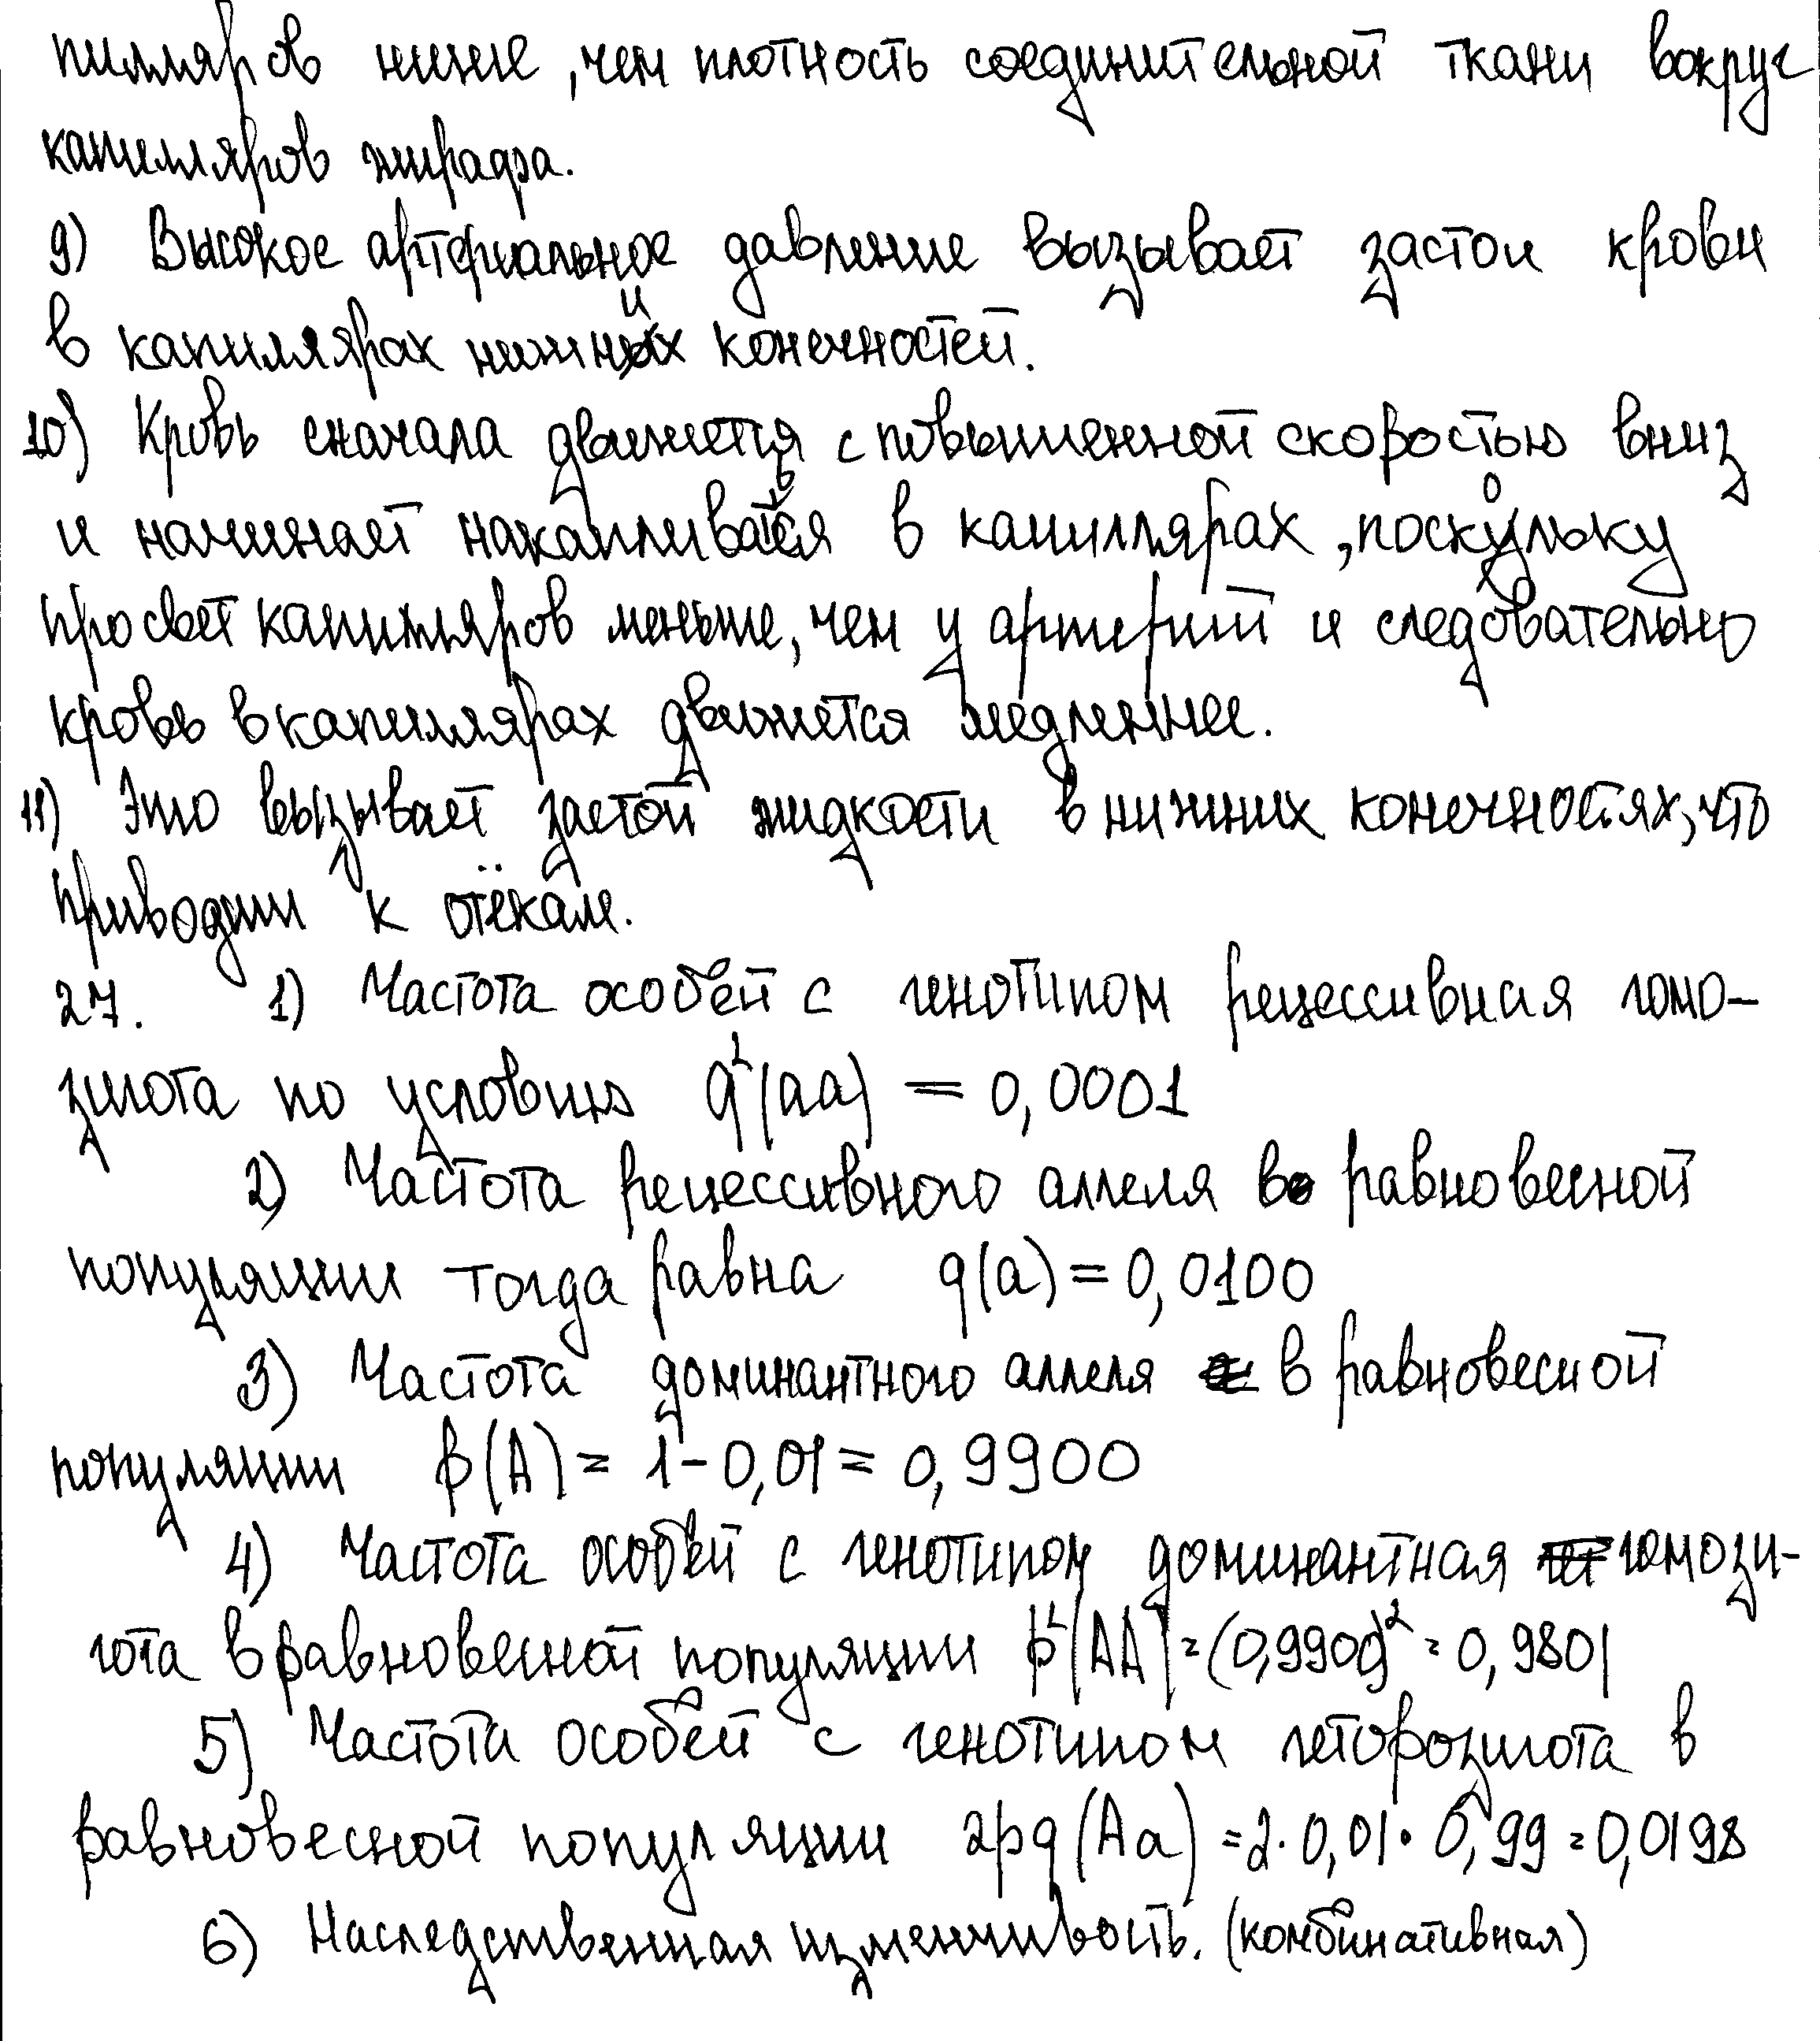 пилляров ниже, чем плотность соединительной ткани вокруг
капилляров жирафа.
9) Высокое артериальное давление вызывает застои крови
в капиллярах нижних конечностей.
10) Кровь сначала движется с повышенной скоростью вниз
и начинает накапливаться в капиллярах, поскольку
просвет капилляров меньше, чем у артерий и следовательно
кровь в капиллярах движется медленнее.
11) Это вызывает застой жидкости в нижних конечностях, что
приводит к отёкам.
27. 1) Частота особей с генотипом рецессивная гомо-
зигота по условию q²(aa) = 0,0001
2) Частота рецессивного аллеля в равновесной
популяции тогда равна q(a) = 0,0100
3) Частота доминантного аллеля в равновесной
популяции p(A) = 1 - 0,01 = 0,9900
4) Частота особей с генотипом доминантная гомози-
гота в равновесной популяции p²(AA) = (0,9900)² = 0,9801
5) Частота особей с генотипом гетерозигота в
равновесной популяции 2pq(Aa) = 2·0,01·0,99 = 0,0198
6) Наследственная изменчивость. (комбинативная)